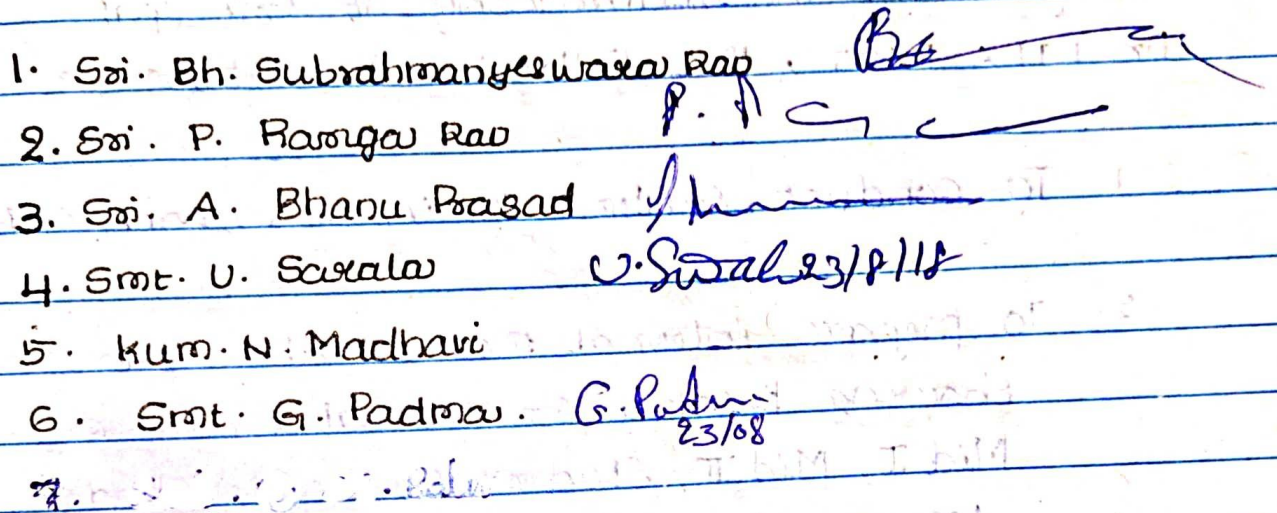 1. Sri. Bh. Subrahmanyeswara Rao.
2. Sri. P. Ranga Rao P.
3. Sri. A. Bhanu Prasad
4. Smt. U. Sarala U. Saral 23/8/18
5. Kum. N. Madhavi
6. Smt. G. Padma. G. Padma
23/08
7.